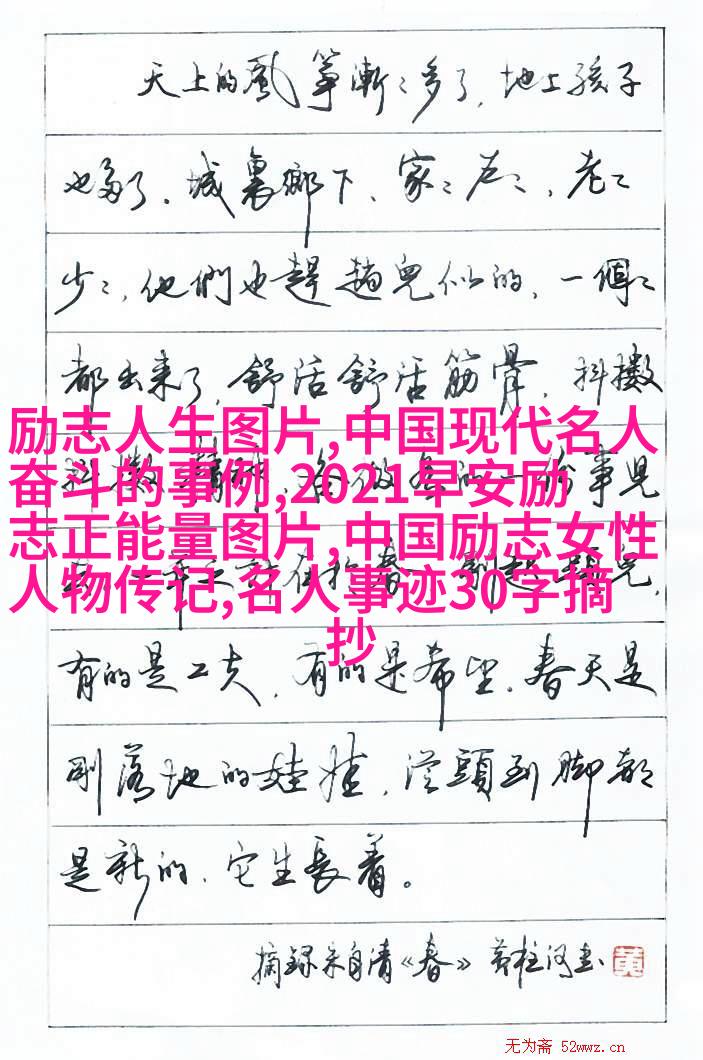 天上的風箏漸〻多了，地上孩子
也多了。城裏鄉下，家〻户〻，老〻
少〻，他們也趕趟兒似的，一個〻
都出来了，舒活舒活筋骨，抖擻
励志人生图片,中国现代名人
奋斗的事例,2021早安励
志正能量图片,中国励志女性
人物传记,名人事迹30字摘
抄
事兒
有的是工夫，有的是希望。春天是
剛落地的娃娃，從頭到脚都
是新的，它生長着。
摘録朱自清《春》 黄柱河書 黄
无为斋 52wwz.cn